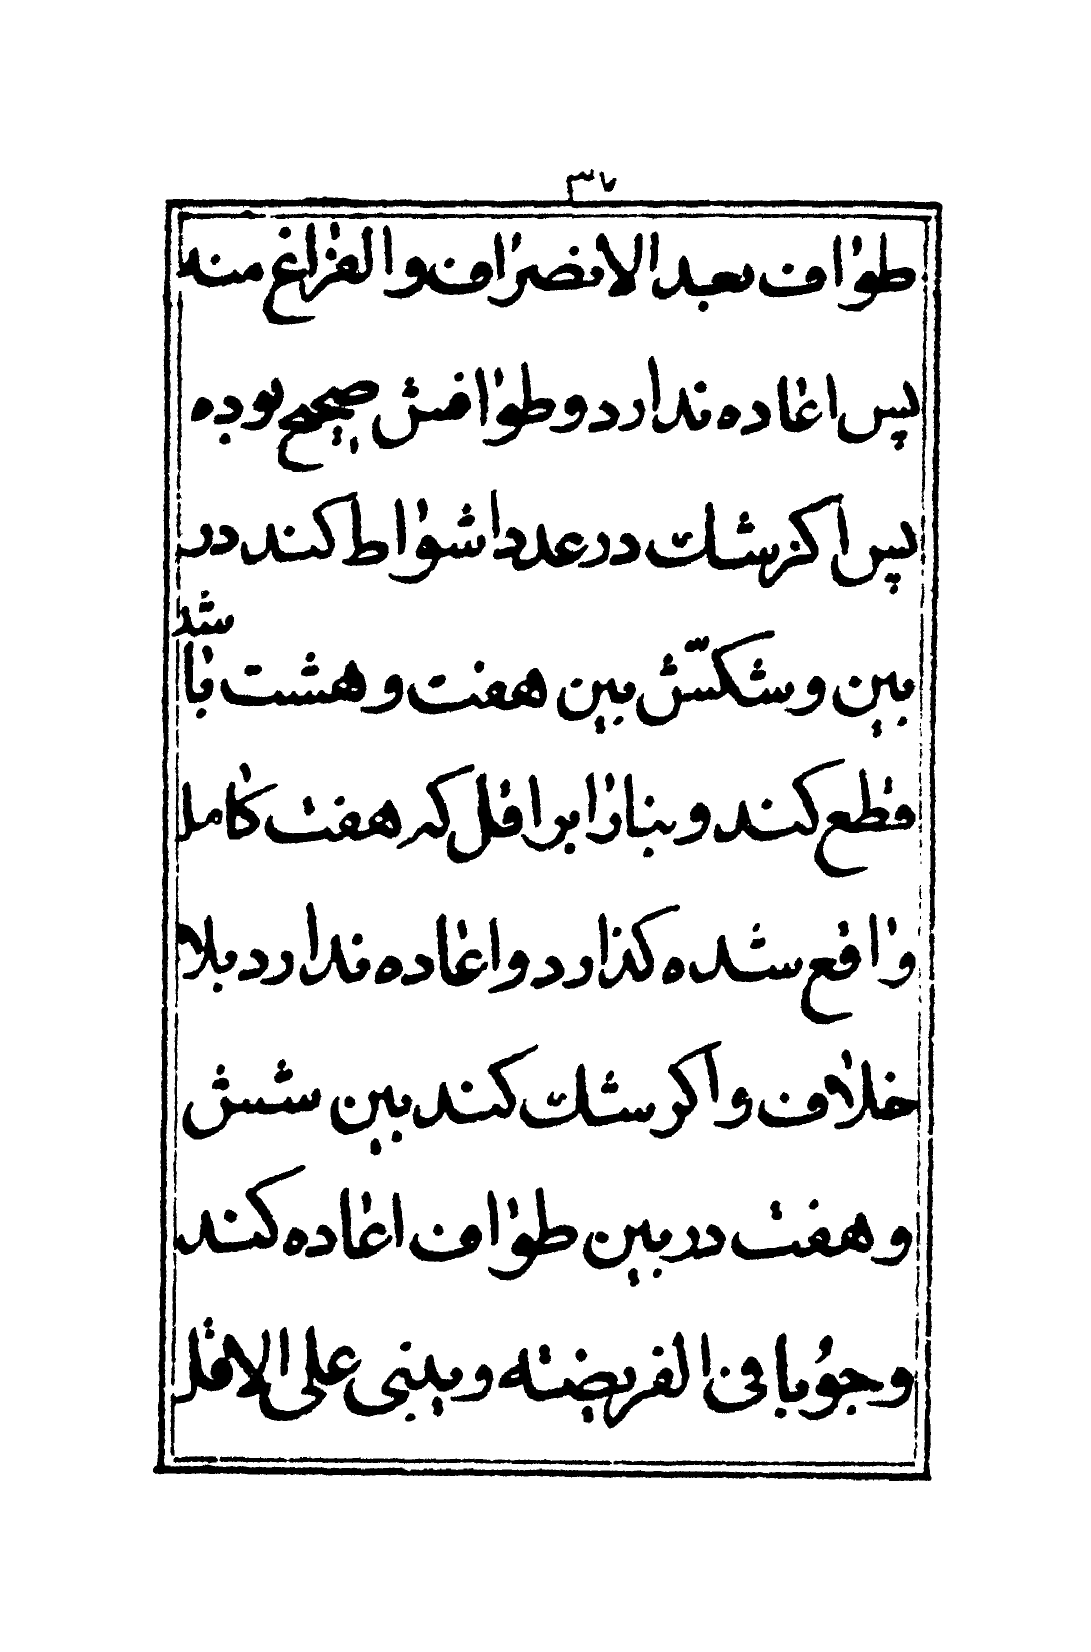 ٣٧
طواف بعد الانصراف والفراغ منه
پس اعاده ندارد و طوافش صحیح بوده
پس اکر شك در عدد اشواط کند در
بین و شکّش بین هفت و هشت با شد
قطع کند و بنا را بر اقل که هفت کامل
واقع شده کذارد و اعاده ندارد بلا
خلاف و اکر شك کند بین شش
و هفت در بین طواف اعاده کند
وجوبا فی الفریضته و یبنی علی الاقل